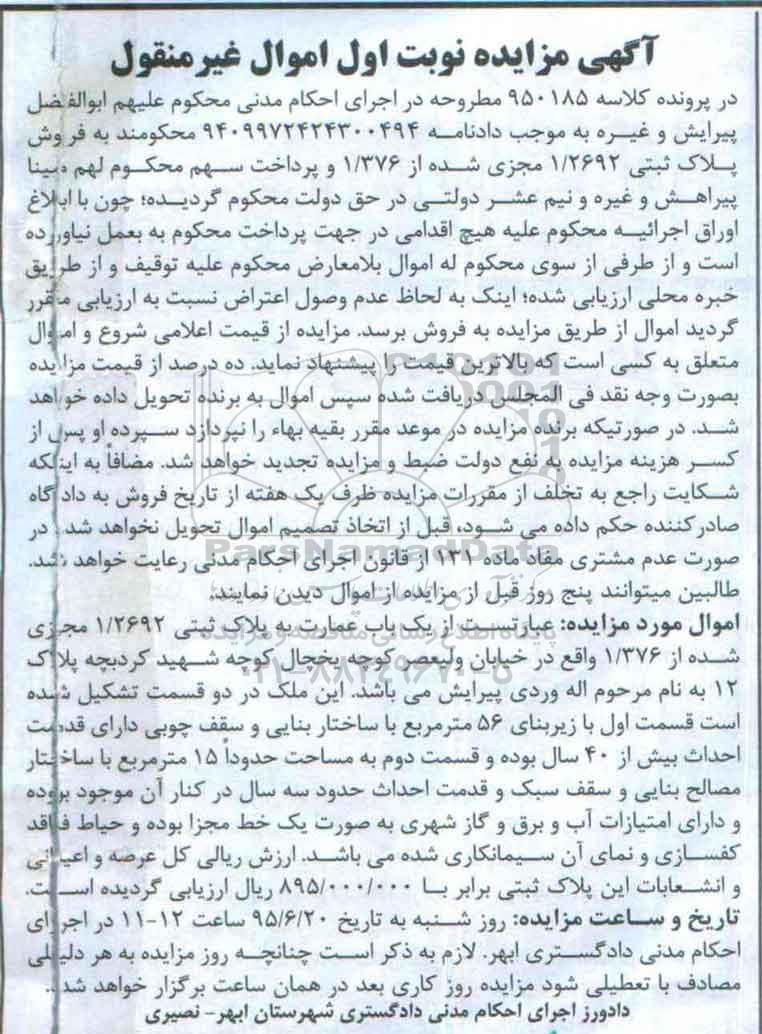 آگهی مزایده نوبت اول اموال غیرمنقول
در پرونده کلاسه ۹۵۰۱۸۵ مطروحه در اجرای احکام مدنی محکوم علیهم ابوالفضل
پیرایش و غیره به موجب دادنامه ۹۴۰۹۹۷۲۴۲۴۳۰۰۴۹۴ محکومند به فروش
پلاک ثبتی ۱/۲۶۹۲ مجزی شده از ۱/۳۷۶ و پرداخت سهم محکوم لهم مینا
پیراهش و غیره و نیم عشر دولتی در حق دولت محکوم گردیده؛ چون با ابلاغ
اوراق اجرائیه محکوم علیه هیچ اقدامی در جهت پرداخت محکوم به بعمل نیاورده
است و از طرفی از سوی محکوم له اموال بلامعارض محکوم علیه توقیف و از طریق
خبره محلی ارزیابی شده؛ اینک به لحاظ عدم وصول اعتراض نسبت به ارزیابی مقرر
گردید اموال از طریق مزایده به فروش برسد. مزایده از قیمت اعلامی شروع و اموال
متعلق به کسی است که بالاترین قیمت را پیشنهاد نماید. ده درصد از قیمت مزایده
بصورت وجه نقد فی المجلس دریافت شده سپس اموال به برنده تحویل داده خواهد
شد. در صورتیکه برنده مزایده در موعد مقرر بقیه بهاء را نپردازد سپرده او پس از
کسر هزینه مزایده به نفع دولت ضبط و مزایده تجدید خواهد شد. مضافاً به اینکه
شکایت راجع به تخلف از مقررات مزایده ظرف یک هفته از تاریخ فروش به دادگاه
صادرکننده حکم داده می شود، قبل از اتخاذ تصمیم اموال تحویل نخواهد شد. در
صورت عدم مشتری مفاد ماده ۱۳۱ از قانون اجرای احکام مدنی رعایت خواهد شد.
طالبین میتوانند پنج روز قبل از مزایده از اموال دیدن نمایند.
اموال مورد مزایده: عبارتست از یک باب عمارت به پلاک ثبتی ۱/۲۶۹۲ مجزی
شده از ۱/۳۷۶ واقع در خیابان ولیعصر کوچه یخچال کوچه شهید کردبچه پلاک
۱۲ به نام مرحوم اله وردی پیرایش می باشد. این ملک در دو قسمت تشکیل شده
است قسمت اول با زیربنای ۵۶ مترمربع با ساختار بنایی و سقف چوبی دارای قدمت
احداث بیش از ۴۰ سال بوده و قسمت دوم به مساحت حدوداً ۱۵ مترمربع با ساختار
مصالح بنایی و سقف سبک و قدمت احداث حدود سه سال در کنار آن موجود بوده
و دارای امتیازات آب و برق و گاز شهری به صورت یک خط مجزا بوده و حیاط فاقد
کفسازی و نمای آن سیمانکاری شده می باشد. ارزش ریالی کل عرصه و اعیانی
و انشعابات این پلاک ثبتی برابر با ۸۹۵/۰۰۰/۰۰۰ ریال ارزیابی گردیده است.
تاریخ و ساعت مزایده: روز شنبه به تاریخ ۹۵/۶/۲۰ ساعت ۱۲-۱۱ در اجرای
احکام مدنی دادگستری ابهر. لازم به ذکر است چنانچه روز مزایده به هر دلیلی
مصادف با تعطیلی شود مزایده روز کاری بعد در همان ساعت برگزار خواهد شد.
دادورز اجرای احکام مدنی دادگستری شهرستان ابهر- نصیری
ParsNamadData
پایگاه اطلاع رسانی مناقصه و مزایده
۰۲۱-۸۸۳۴۹۶۷۰-۵